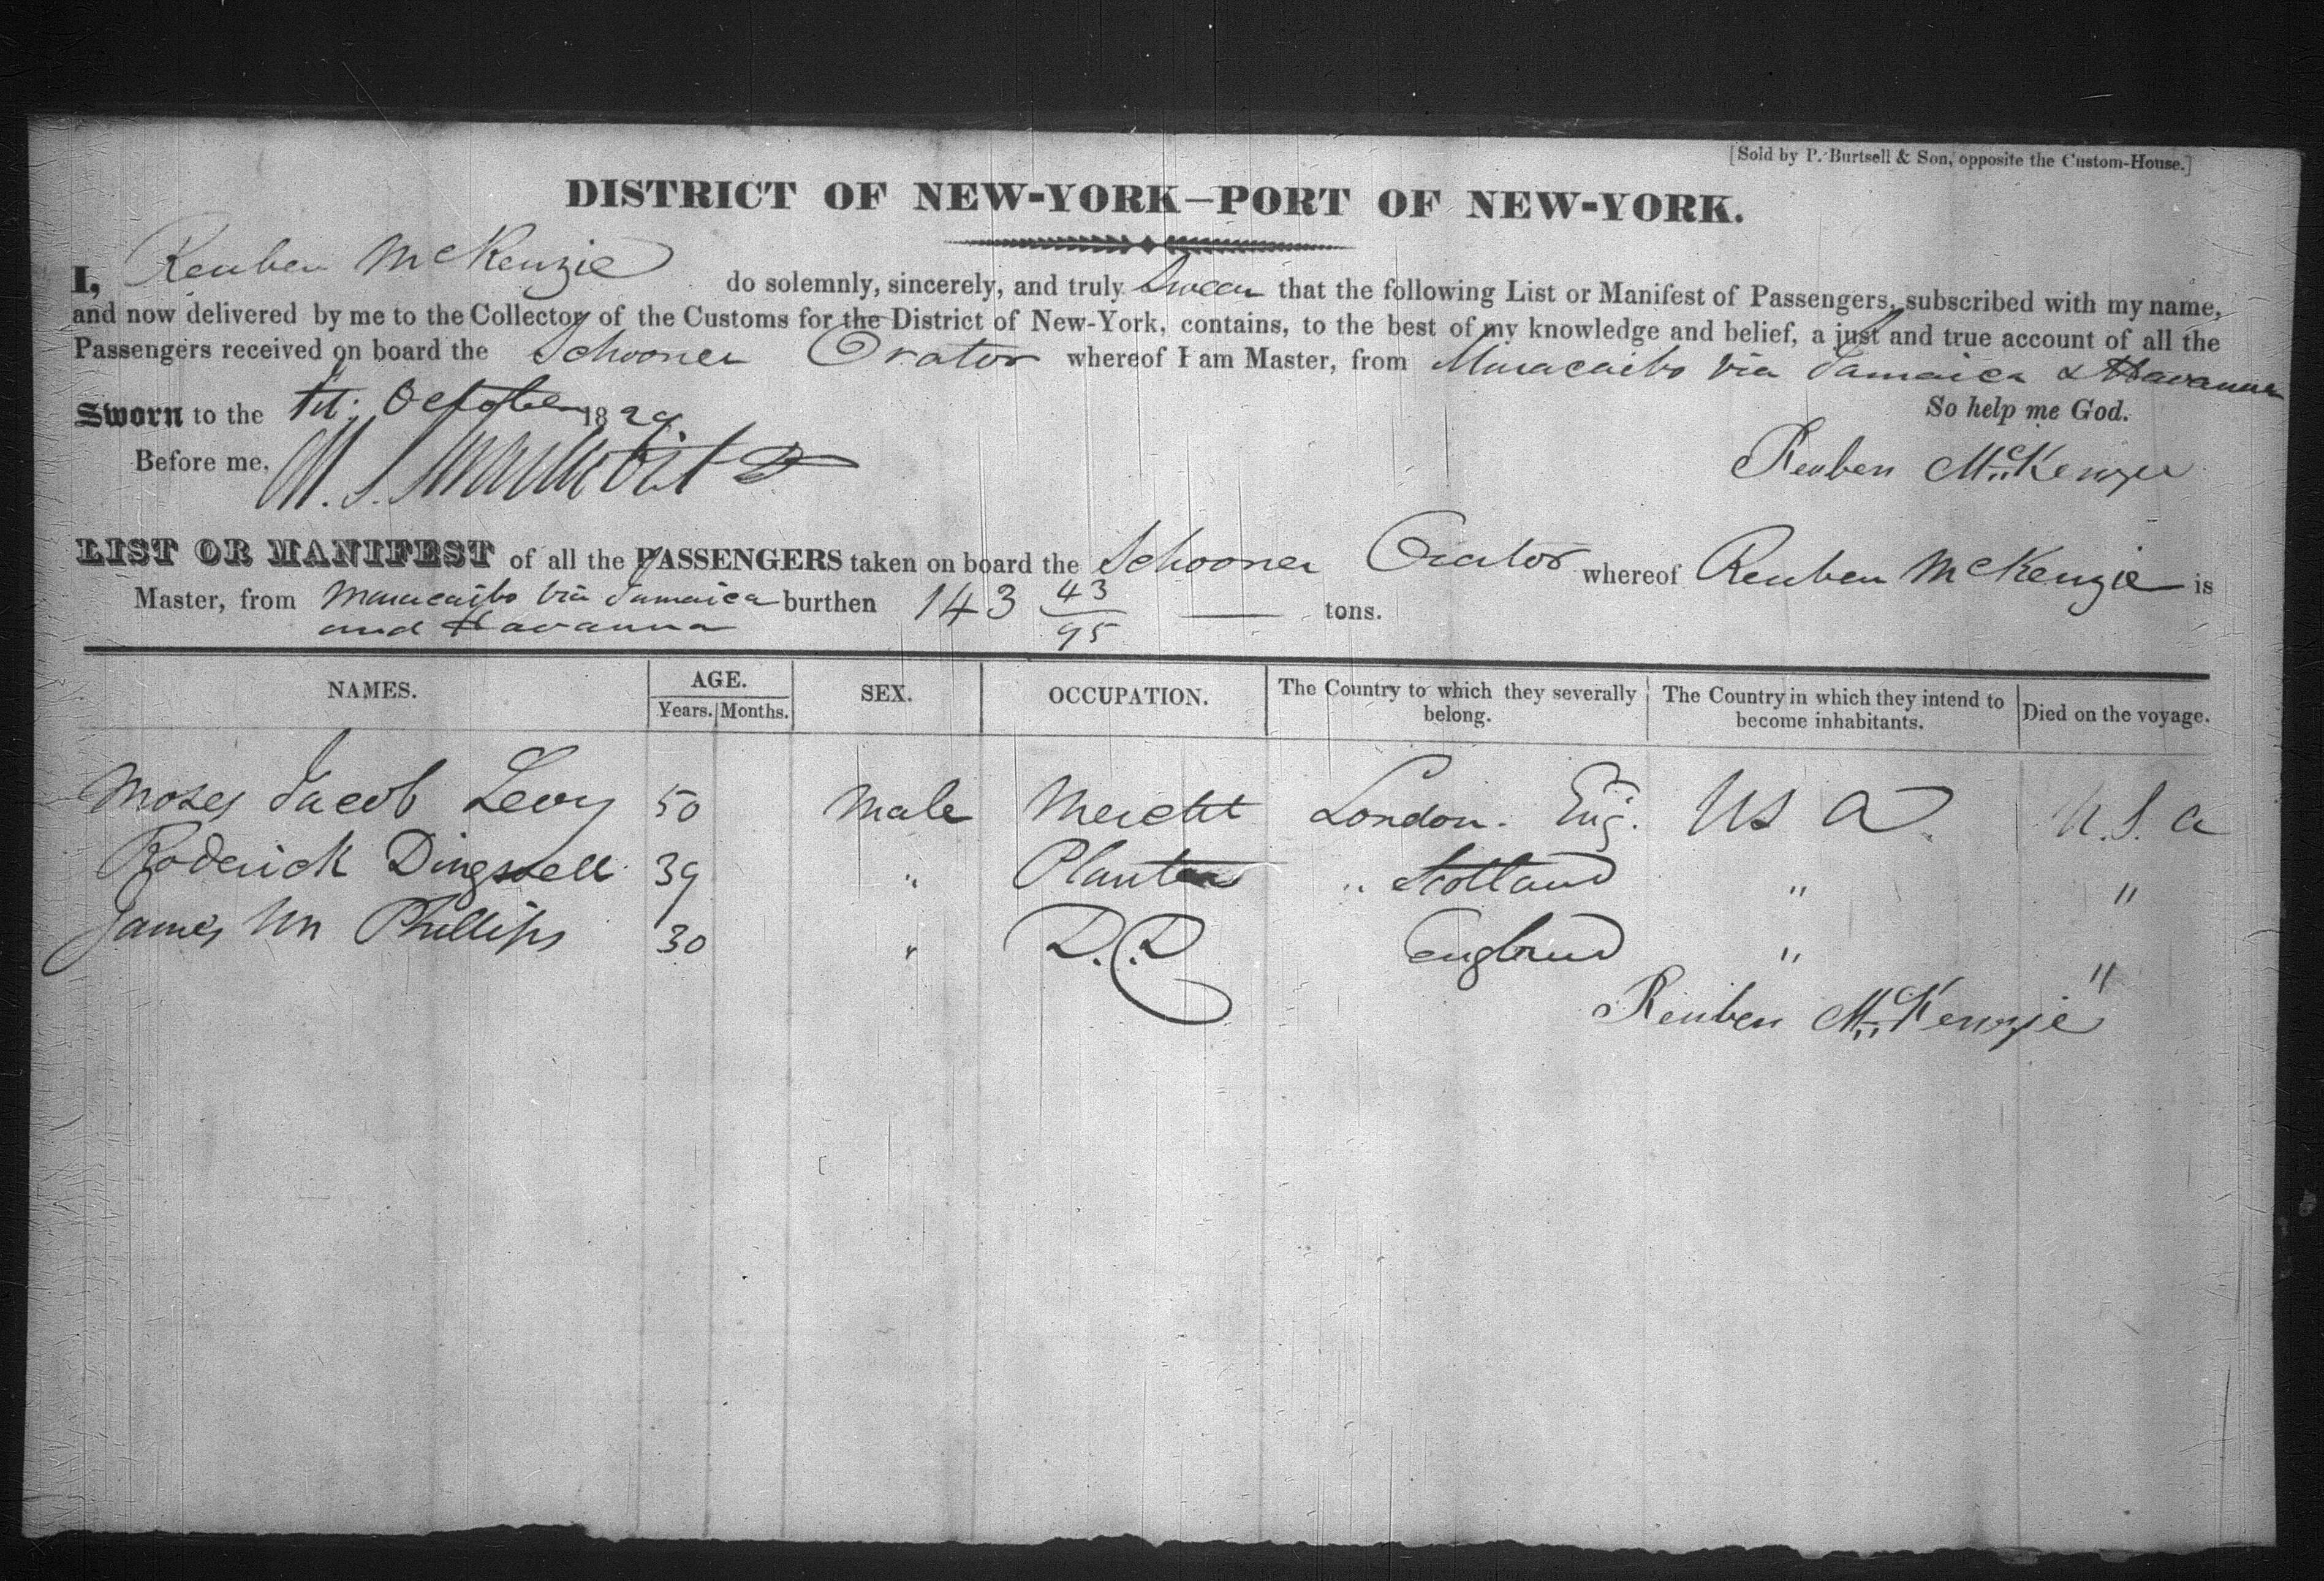 [Sold by P. Burtsell & Son, opposite the Custom-House.]
DISTRICT OF NEW-YORK—PORT OF NEW-YORK.
I, Reuben McKenzie do solemnly, sincerely, and truly Swear that the following List or Manifest of Passengers, subscribed with my name,
and now delivered by me to the Collector of the Customs for the District of New-York, contains, to the best of my knowledge and belief, a just and true account of all the
Passengers received on board the Schooner Orator whereof I am Master, from Maracaibo Via Jamaica & Havanna
Sworn to the October 1829. So help me God.
Before me, Reuben McKenzie
LIST OR MANIFEST of all the PASSENGERS taken on board the Schooner Orator whereof Reuben McKenzie is
Master, from Maracaibo Via Jamaica and Havanna burthen 143 43/95 tons.
NAMES. AGE. Years. Months. SEX. OCCUPATION. The Country to which they severally belong. The Country in which they intend to become inhabitants. Died on the voyage.
Moses Jacob Levy 50 Male Mercht London. Eng. US A U.S. a
Roderick Dingwell 39 " Planter " Scotland " "
James Wm Phillips 30 " D.D England " "
Reuben McKenzie